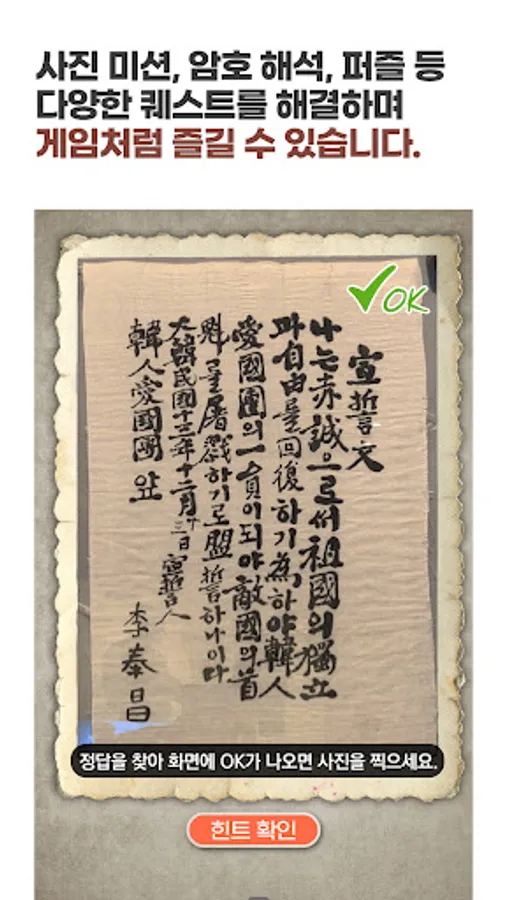 사진 미션, 암호 해석, 퍼즐 등
다양한 퀘스트를 해결하며
게임처럼 즐길 수 있습니다.
OK
宣誓文
나는赤誠으로써祖國의獨立
과自由를回復하기爲하야韓人
愛國團의一員이되야敵國의首
魁를屠戮하기로盟誓하나이다
大韓民國十三年十二月十三日
宣誓人
李奉昌
韓人愛國團앞
정답을 찾아 화면에 OK가 나오면 사진을 찍으세요.
힌트 확인